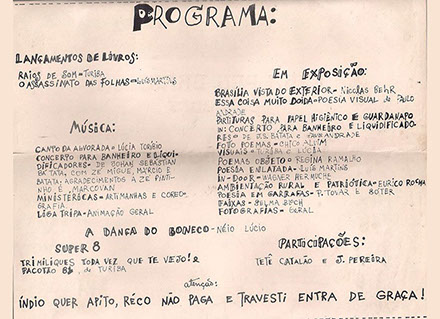 PROGRAMA:
LANÇAMENTOS DE LIVROS:
RAIOS DE SOM - TURIBA
O ASSASSINATO DAS FOLHAS - LUIS MARTINS
MÚSICA:
CANTO DA ALVORADA - LÚCIA TORÍBIO
CONCERTO PARA BANHEIRO E LIQUI-
DIFICADORES - DE BOHAN SEBASTIAN
BATATA, COM ZE MIGUE, MARCIO E
BATATA; AGRADECIMENTOS À ZE PINTI-
NHO E MARCOVAN
MINISTÉRICAS - ARTIMANHAS E COREO-
GRAFIA
LIGA TRIPA - ANIMAÇÃO GERAL
EM EXPOSIÇÃO:
BRASILIA VISTA DO EXTERIOR - NICOLAS BEHR
ESSA COISA MUITO DOIDA - POESIA VISUAL de PAULO
ANDRADE
PARTITURAS PARA PAPEL HIGIÊNICO E GUARDANAPO
IN: CONCERTO PARA BANHEIRO E LIQUIDIFICADO-
RES - DE J.S. BATATA E PAULANDRADE
FOTO POEMAS - CHICO ALVIM
VISUAIS - TURIBA E LUCIA
POEMAS OBJETO - REGINA RAMALHO
POESIA ENLATADA - LUIS MARTINS
IN-DOOR - WAGNER HERMUCHE
AMBIENTAÇÃO RURAL E PATRIÓTICA - EURICO ROCHA
POESIA EM GARRAFAS - P. TOVAR E BÓTER
FAIXAS - BELMA BECH
FOTOGRAFIAS - GERAL
A DANÇA DO BONECO - NÉIO LÚCIO
SUPER 8
TRIMILIQUES TODA VEZ QUE TE VEJO! E
PACOTÃO 81, de TURIBA
PARTICIPAÇÕES:
TETÊ CATALÃO E J. PEREIRA
atenção:
ÍNDIO QUER APITO, RÉCO NÃO PAGA E TRAVESTI ENTRA DE GRAÇA!